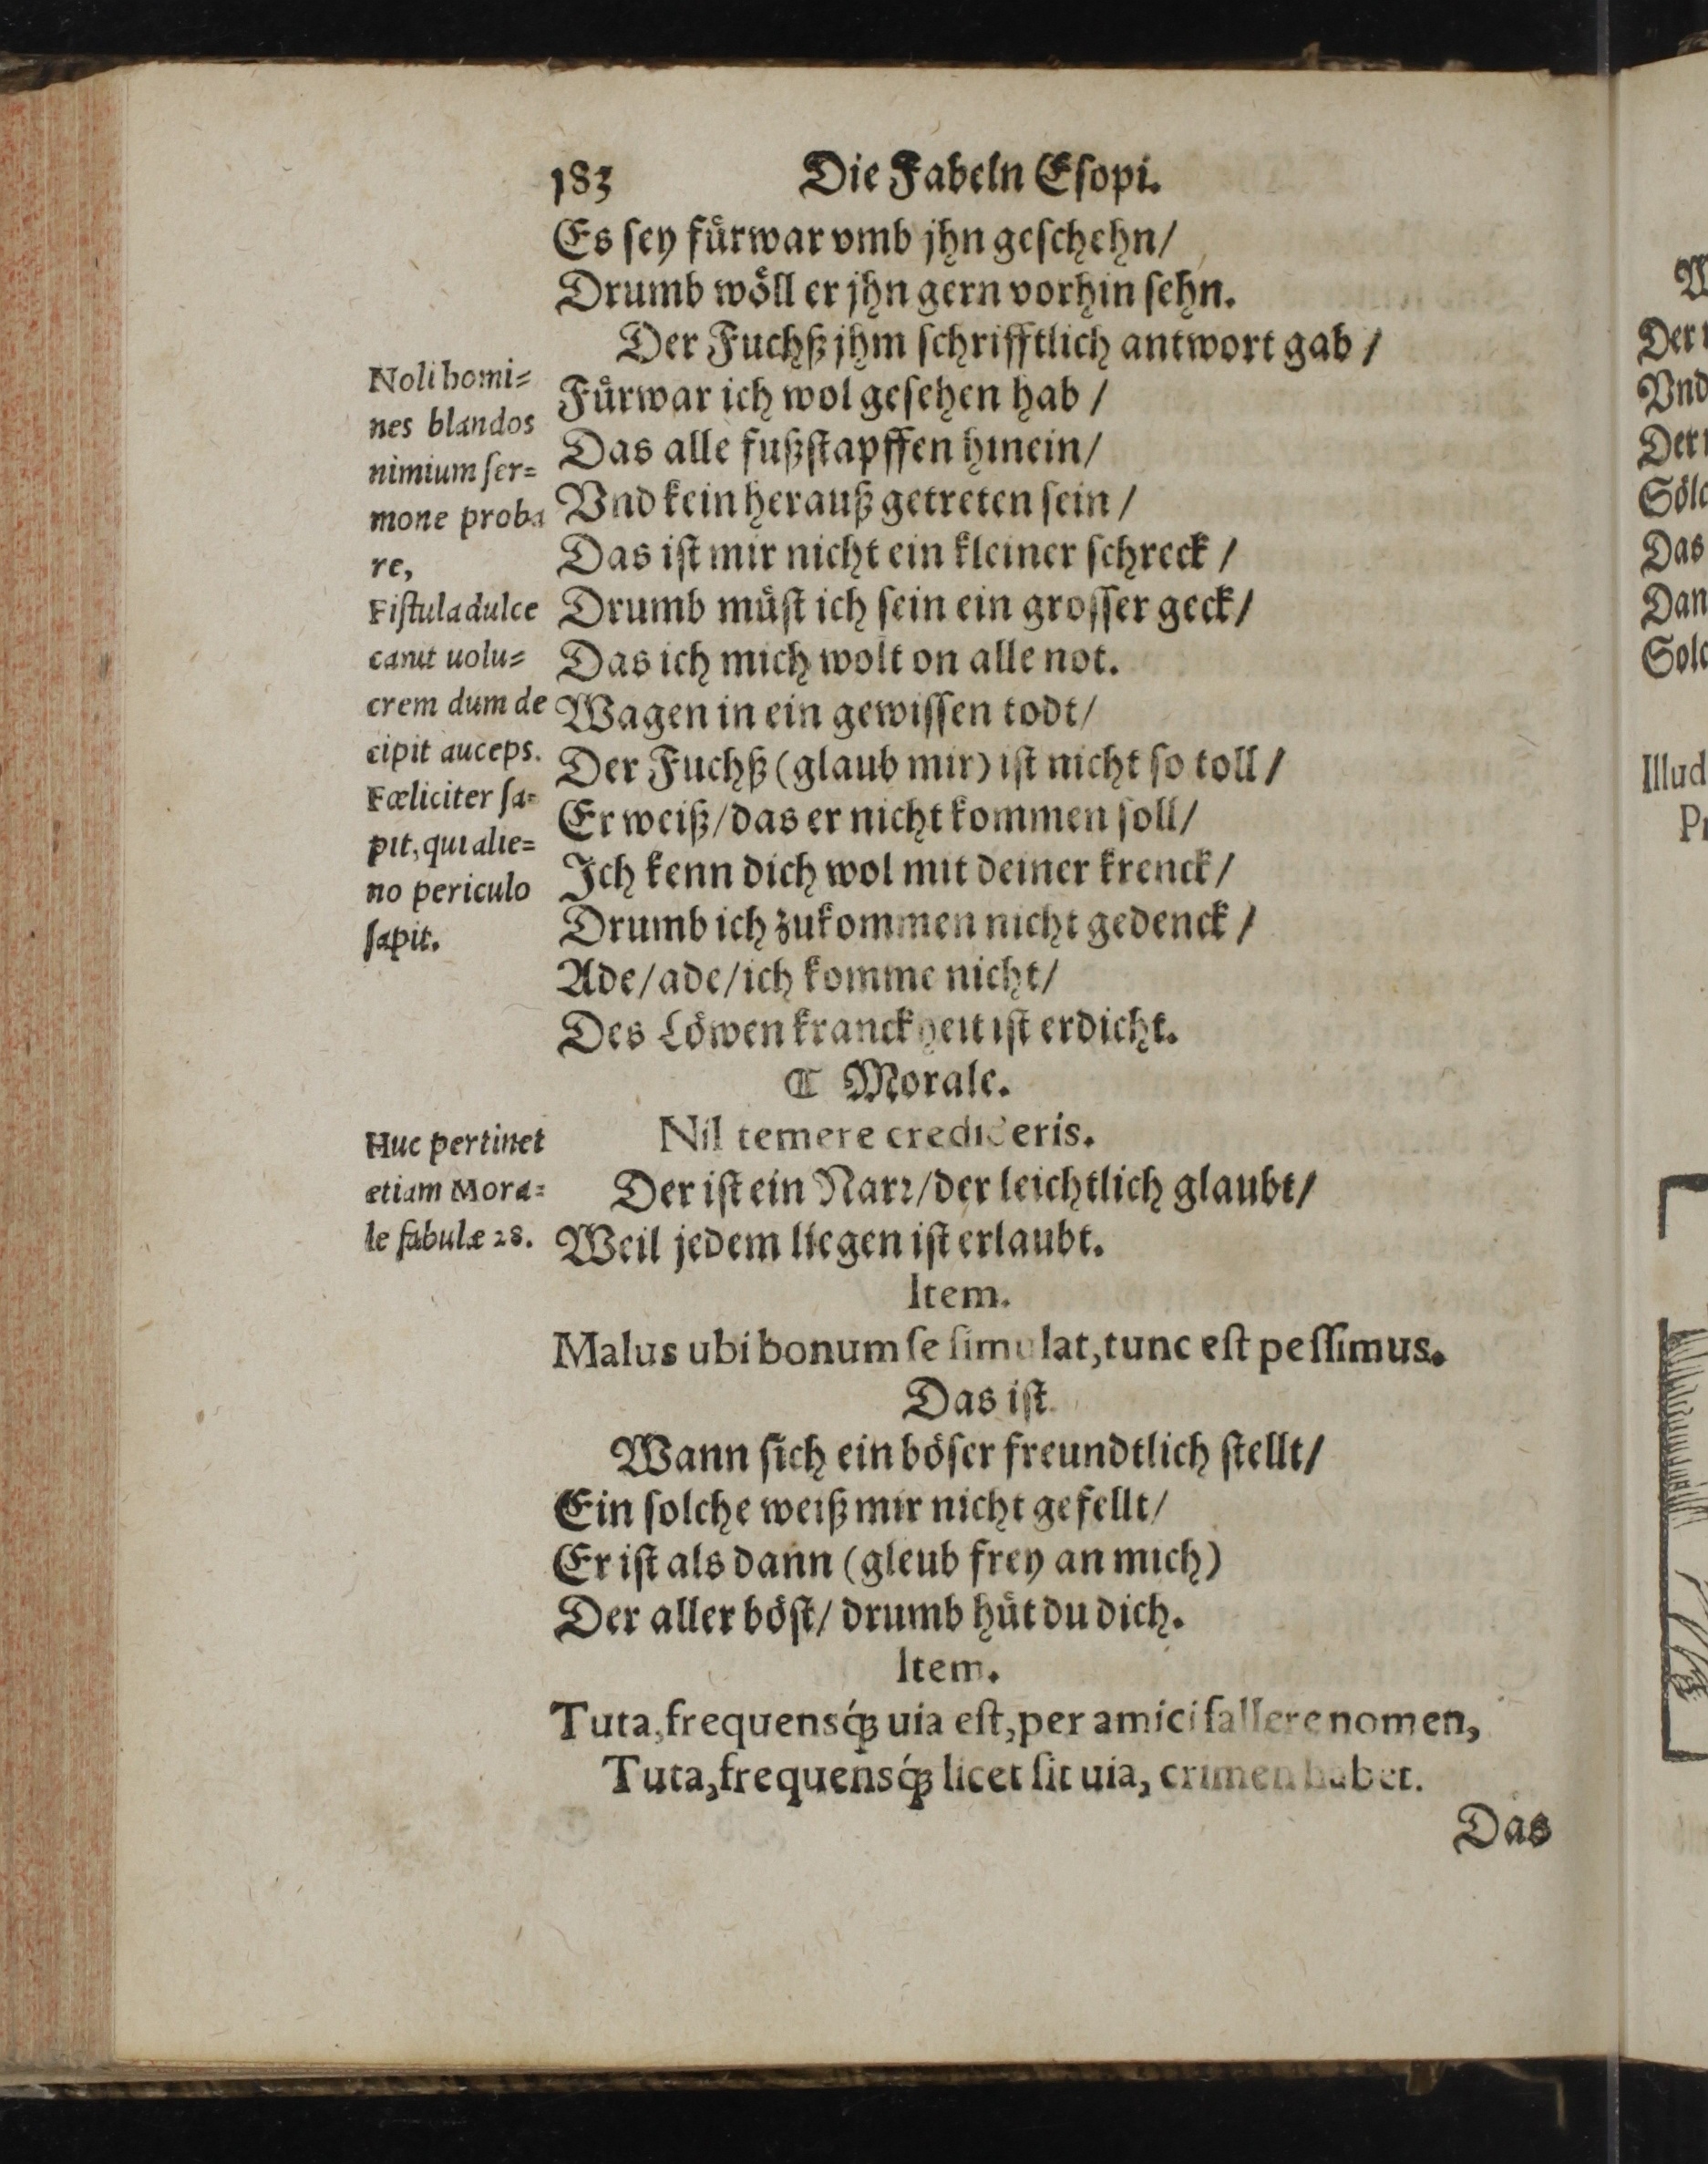 183 Die Fabeln Eſopi.
Es ſey fuͤrwar vmb jhn geſchehn/
Drumb woͤll er jhn gern vorhin ſehn.
Der Fuchß jhm ſchrifftlich antwort gab /
Fuͤrwar ich wol geſehen hab /
Das alle fußſtapffen hinein/
Vnd kein herauß getreten ſein /
Das iſt mir nicht ein kleiner ſchreck /
Drumb muͤſt ich ſein ein groſſer geck/
Das ich mich wolt on alle not.
Wagen in ein gewiſſen todt/
Der Fuchß (glaub mir) iſt nicht ſo toll /
Er weiß/das er nicht kommen ſoll/
Ich kenn dich wol mit deiner krenck/
Drumb ich zukommen nicht gedenck /
Ade/ade/ich komme nicht/
Des Loͤwen kranckheit iſt erdicht.
Noli homi⸗
nes blandos
nimium ſer⸗
mone proba
re,
Fiſtula dulce
canit uolu⸗
crem dum de
cipit auceps.
Fœliciter ſa⸗
pit, qui alie⸗
no periculo
ſapit.
⸿ Morale.
Nil temere credideris.
Der iſt ein Narꝛ/der leichtlich glaubt/
Weil jedem liegen iſt erlaubt.
Huc pertinet
etiam Mora⸗
le fabulæ 28.
Item.
Malus ubi bonum ſe ſimulat, tunc eſt peſſimus.
Das iſt
Wann ſich ein boͤſer freundtlich ſtellt/
Ein ſolche weiß mir nicht gefellt/
Er iſt als dann (gleub frey an mich)
Der aller boͤſt/ drumb huͤt du dich.
Item.
Tuta, frequensq́ꝫ uia eſt, per amici fallere nomen,
Tuta, frequensq́ꝫ licet ſit uia, crimen habet.
Das
Der
Vnd
Der
Soͤlc
Das
Dan
Solc
Illud